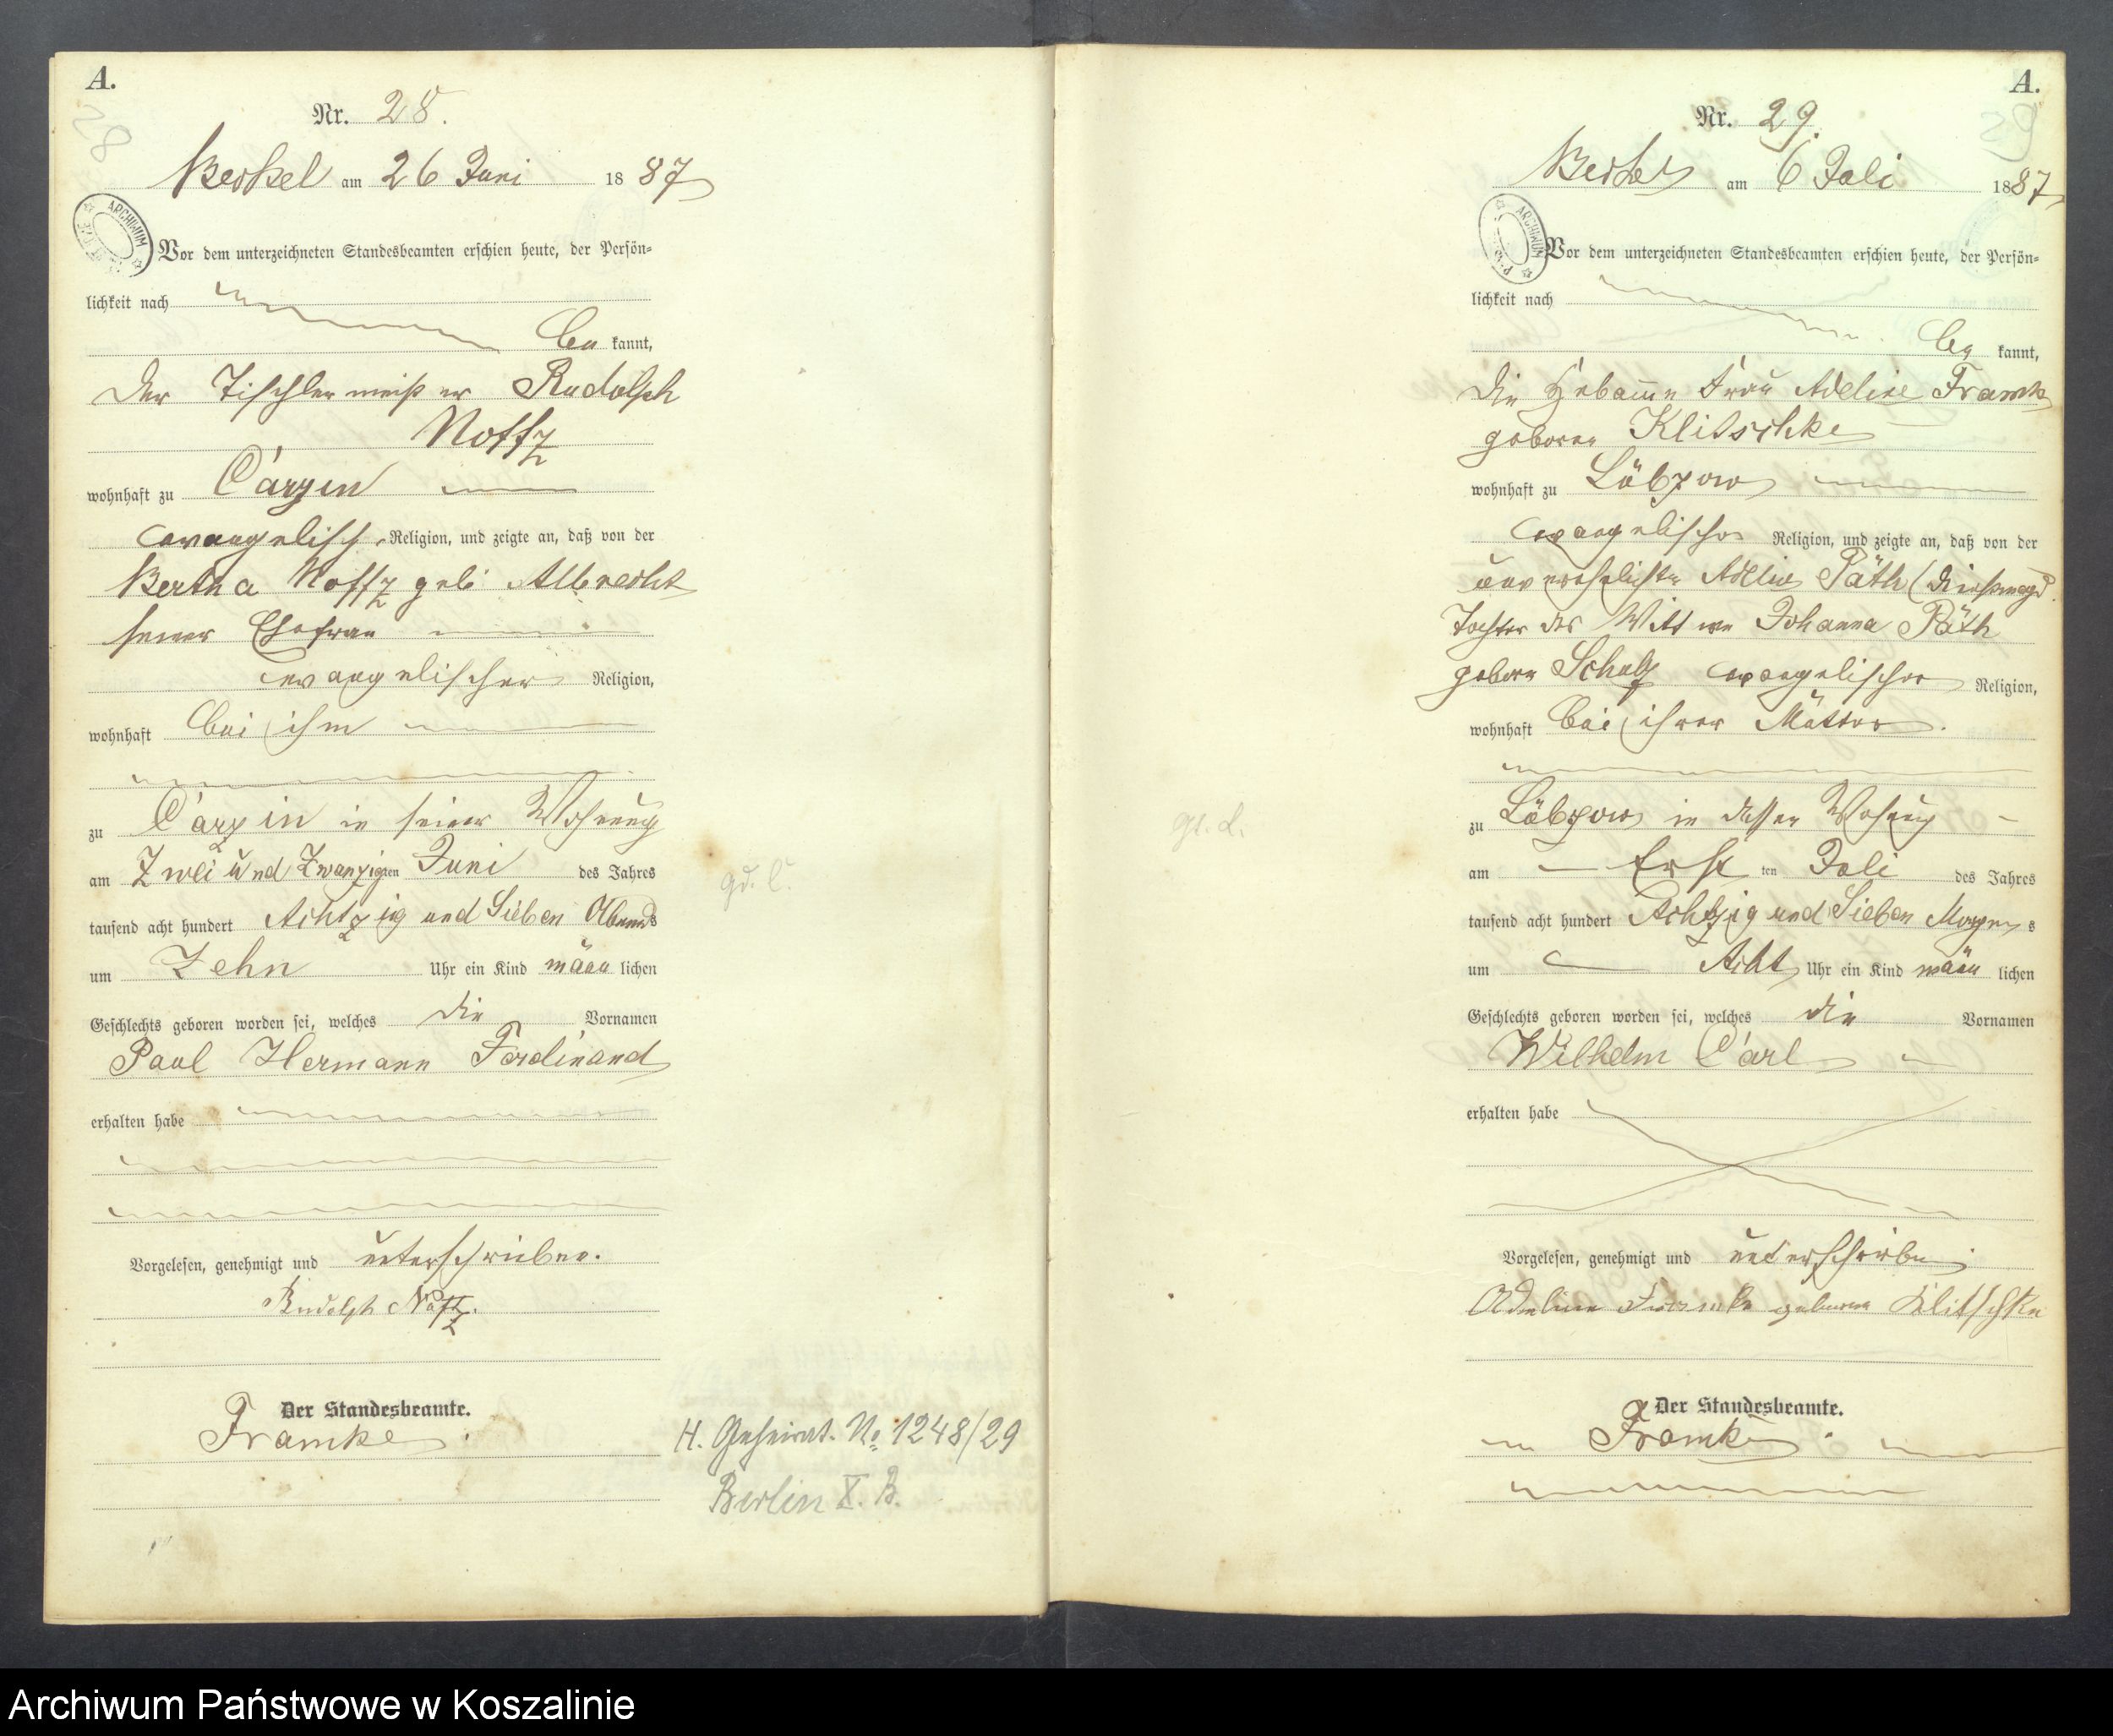 A.
28
Nr. 28.
Beskel am 26 Juni 1887
ARCHIWUM
Vor dem unterzeichneten Standesbeamten erschien heute, der Persön-
lichkeit nach
be kannt,
der Tischlermeister Rudolph
Noffz
wohnhaft zu Carzin
evangelisch. Religion, und zeigte an, daß von der
Bertha Noffz geb: Albrecht
seiner Ehefrau
evangelischer Religion,
wohnhaft bei ihm
zu Carzin in seiner Wohnung
am Zwei und Zwanzigten Juni des Jahres
tausend acht hundert Achtzig und Sieben Abends
um Zehn Uhr ein Kind männlichen
Geschlechts geboren worden sei, welches die Vornamen
Paul Hermann Ferdinand
erhalten habe
Vorgelesen, genehmigt und unterschrieben.
Rudolph Noffz.
Der Standesbeamte.
Framke.
H. Geheirat. No 1248/29
Berlin X. B.
A.
29
Nr. 29.
am 6 Juli 1887
ARCHIWUM
Vor dem unterzeichneten Standesbeamten erschien heute, der Persön-
lichkeit nach
be kannt,
die Hebamme Frau Adeline Framk
geboren Klitschke
wohnhaft zu Lübzow
evangelischer Religion, und zeigte an, daß von der
unverehelichte Adline Päth (Dienstmagd
Tochter der Wittwe Johanna Päth
geborn Schulz evangelischer Religion,
wohnhaft bei ihrer Mutter.
zu Lübzow in dessen Wohung
am Ersten Juli des Jahres
tausend acht hundert Achtzig und Sieben Morgens
um Acht Uhr ein Kind männ lichen
Geschlechts geboren worden sei, welches die Vornamen
Wilhelm Carl
erhalten habe
Vorgelesen, genehmigt und unterschrieben.
Adeline Framke geborne Klitschke
Der Standesbeamte.
Framke.
Archiwum Państwowe w Koszalinie